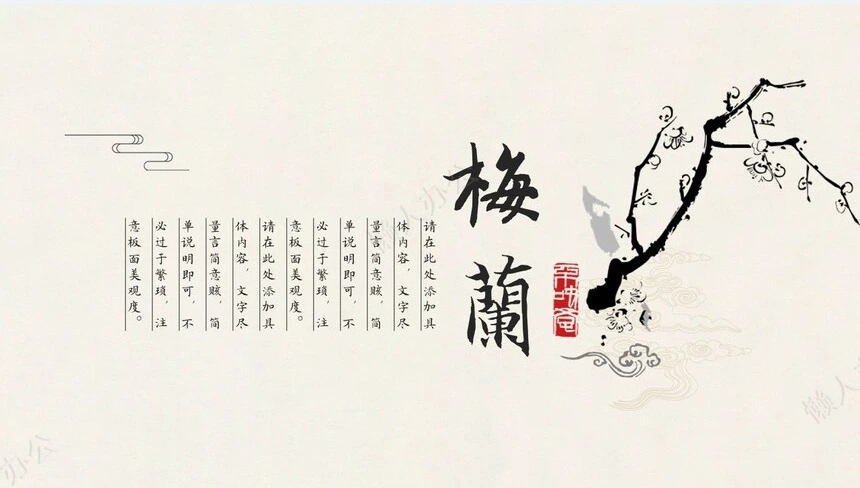 梅蘭
请在此处添加具
体内容，文字尽
量言简意赅，简
单说明即可，不
必过于繁琐，注
意板面美观度。
请在此处添加具
体内容，文字尽
量言简意赅，简
单说明即可，不
必过于繁琐，注
意板面美观度。
懒人办公
懒人
办公